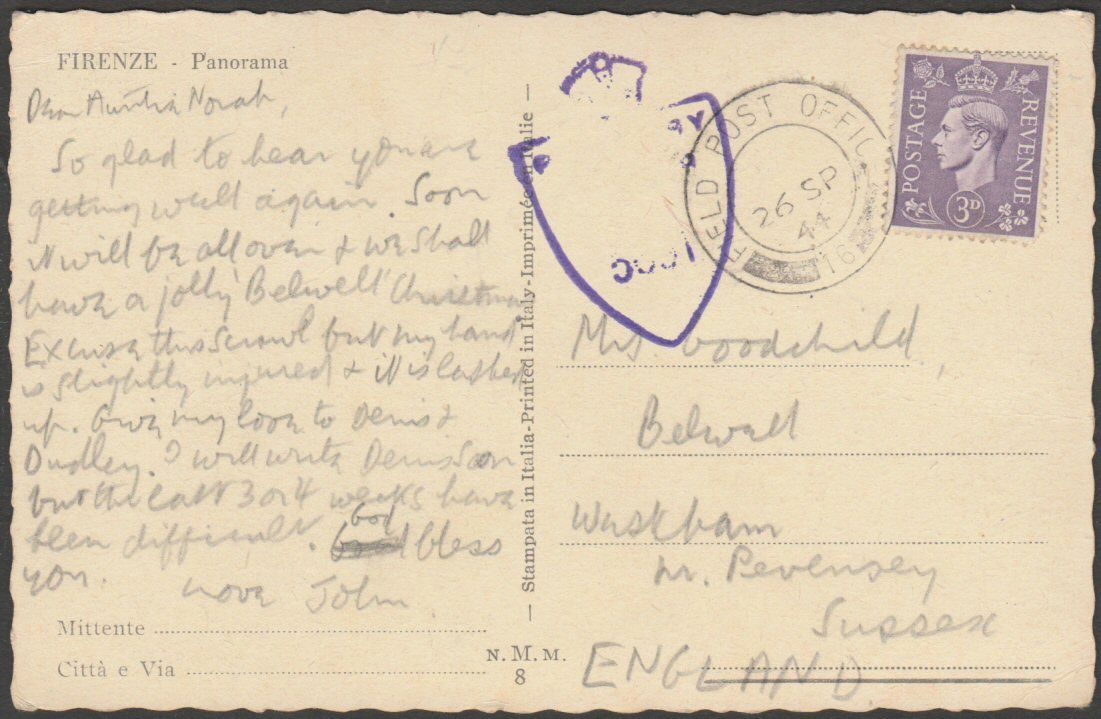 FIRENZE - Panorama
Dear Auntie Norah,
So glad to hear you are
getting well again. Soon
it will be all over & we shall
have a jolly 'Belwell' Christmas.
Excuse this scrawl but my hand
is slightly injured & it is lashed
up. Give my love to Denis &
Dudley. I will write Denis soon
but the last 3 or 4 weeks have
been difficult. God bless
you. Love John.
Mittente
Città e Via
— Stampata in Italia-Printed in Italy-Imprimée en Italie —
N. M. M.
8
FIELD POST OFFICE
26 SP
44
16
POSTAGE REVENUE
3D
Mrs Goodchild,
Belwell
Westham
nr. Pevensey
Sussex
ENGLAND